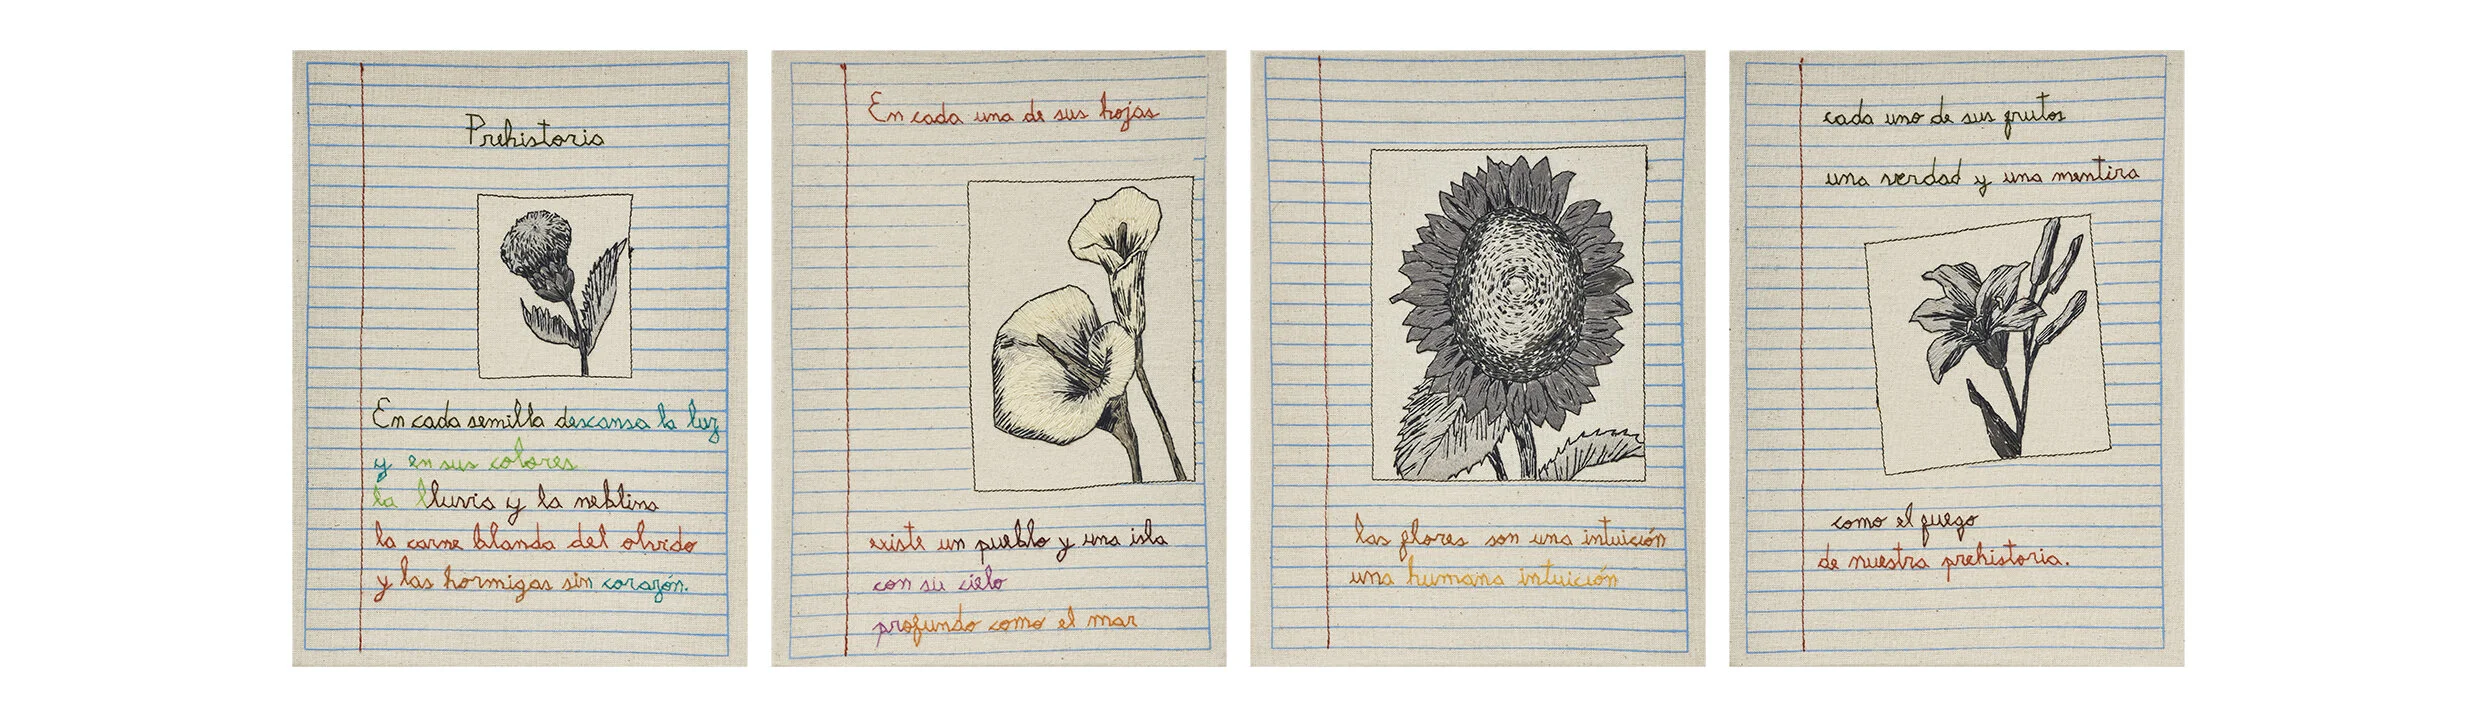 Prehistoria
En cada semilla descansa la luz
y en sus colores
la lluvia y la neblina
la carne blanda del olvido
y las hormigas sin corazón.
En cada una de sus hojas
existe un pueblo y una isla
con su cielo
profundo como el mar
las flores son una intuición
una humana intuición
cada uno de sus frutos
una verdad y una mentira
como el fuego
de nuestra prehistoria.